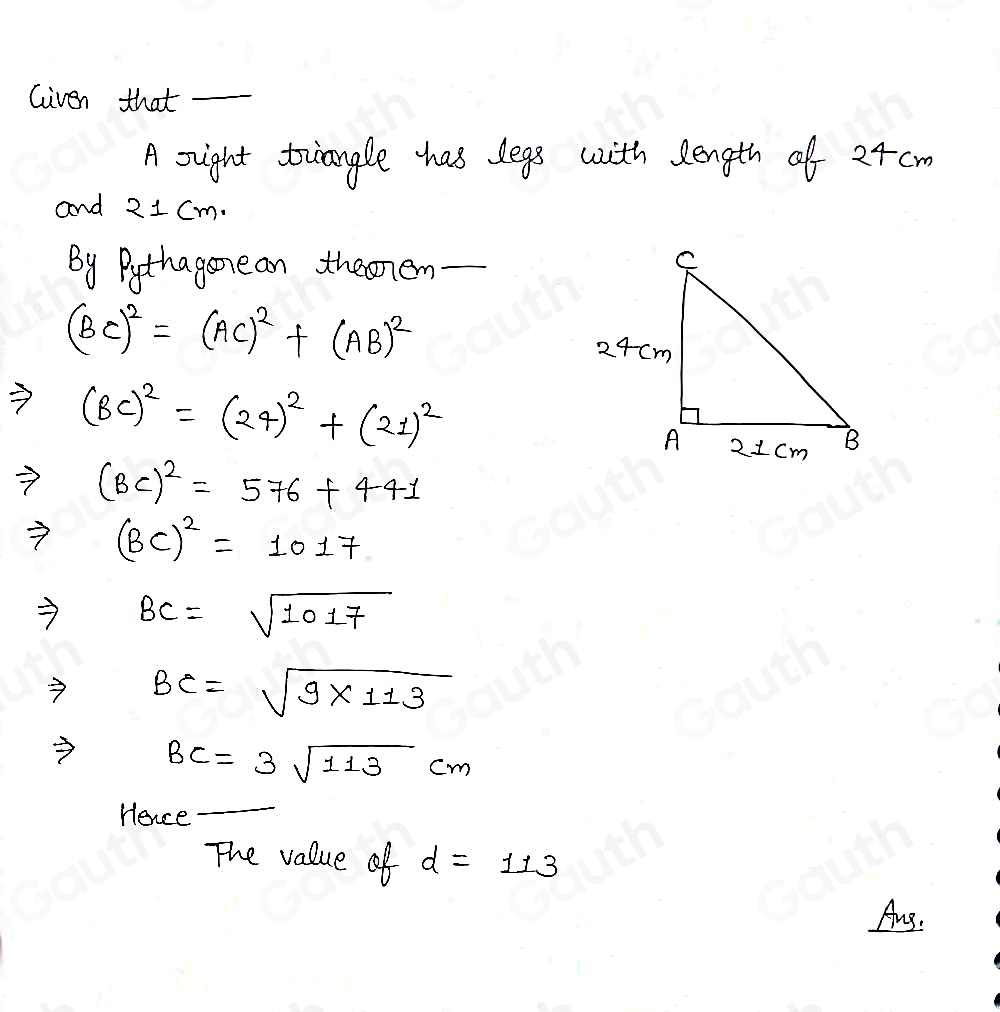 Given that —
A right triangle has legs with length of 24 cm
and 21 cm.
By Pythagorean theorem —
(BC)² = (AC)² + (AB)²
⇒ (BC)² = (24)² + (21)²
⇒ (BC)² = 576 + 441
⇒ (BC)² = 1017
⇒ BC = √1017
⇒ BC = √9×113
⇒ BC = 3√113 cm
Hence —
The value of d = 113
Ans.
C
24 cm
A
21 cm
B
Gauth